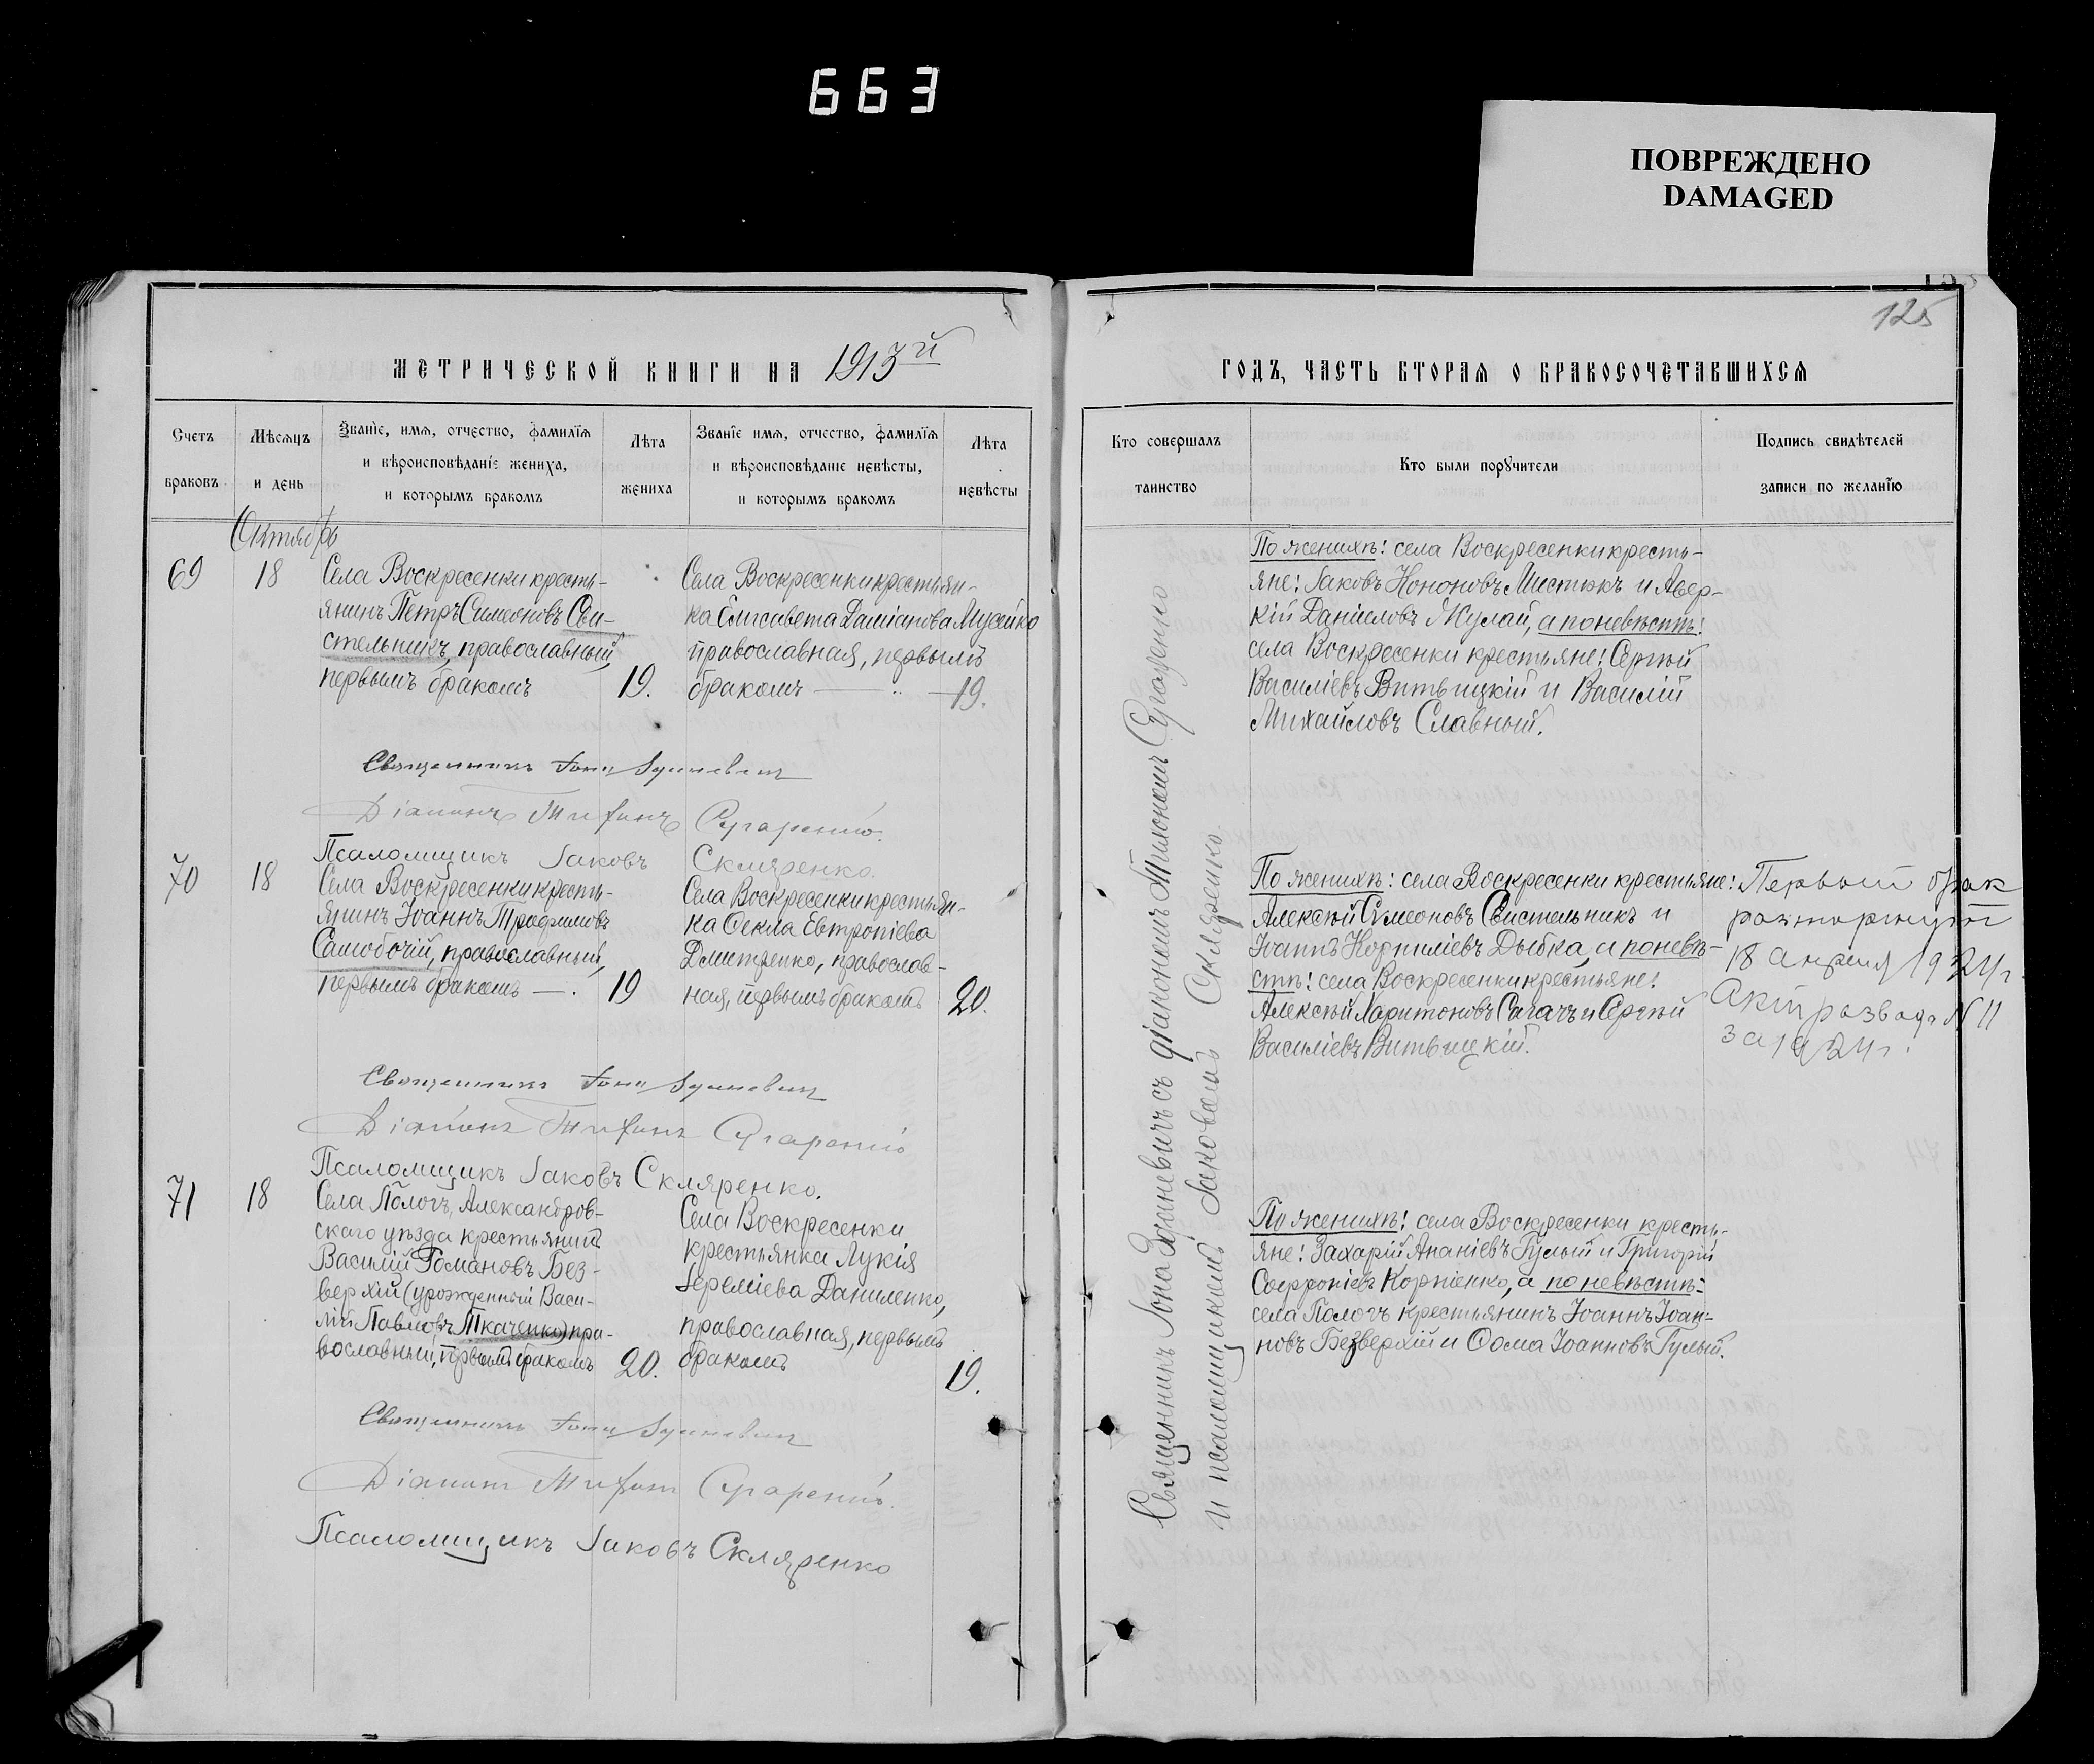 663
ПОВРЕЖДЕНО
DAMAGED
125
МЕТРИЧЕСКОЙ КНИГИ НА 1913й
ГОДЪ, ЧАСТЬ ВТОРАЯ О БРАКОСОЧЕТАВШИХСЯ
Счетъ браковъ
Мѣсяцъ и день
Званіе, имя, отчество, фамилія и вѣроисповѣданіе жениха, и которымъ бракомъ
Лѣта жениха
Званіе имя, отчество, фамилія и вѣроисповѣданіе невѣсты, и которымъ бракомъ
Лѣта невѣсты
Кто совершалъ таинство
Кто были поручители
Подпись свидѣтелей записи по желанію
Октябрь
69
18
Села Воскресенки кресть-
янинъ Петръ Симеоновъ Сви-
стельникъ, православный,
первымъ бракомъ
19.
Села Воскресенки крестьян-
ка Елисавета Даміанова Мусейко
православная, первымъ
бракомъ — 19.
По женихѣ: села Воскресенки кресть-
яне: Іаковъ Кононовъ Мистюкъ и Авер-
кій Даніиловъ Жулай, а по невѣстѣ:
села Воскресенки крестьяне: Сергѣй
Василіевъ Витвицкій и Василій
Михайловъ Славный.
Священникъ Іона
Діаконъ
Псаломщикъ Іаковъ Скляренко.
70
18
Села Воскресенки кресть-
янинъ Іоаннъ Трофимовъ
Самобочій, православный,
первымъ бракомъ —.
19
Села Воскресенки крестьян-
ка Ѳекла Евтропіева
Дмитренко, православ-
ная, первымъ бракомъ
20.
По женихѣ: села Воскресенки крестьяне:
Алексѣй Симеоновъ Свистельникъ и
Іоаннъ Корниліевъ Дыбка, а по невѣ-
стѣ: села Воскресенки крестьяне:
Алексѣй Харитоновъ Сагачъ и Сергѣй
Василіевъ Витвицкій.
Первый брак
расторгнут
18 апреля 1924 г.
Акт развода N 11
за 1924 г.
Священникъ Іона
Діаконъ
Псаломщикъ Іаковъ Скляренко.
71
18
Села Пологъ, Александров-
скаго уѣзда крестьянинъ
Василій Романовъ Без-
верхій (урожденный Васи-
лій Павловъ Ткаченко) пра-
вославный, первымъ бракомъ
20.
Села Воскресенки
крестьянка Лукія
Іереміева Даниленко,
православная, первымъ
бракомъ
19.
По женихѣ: села Воскресенки кресть-
яне: Захарій Ананіевъ Гулый и Григорій
Софроніевъ Корніенко, а по невѣстѣ:
села Пологъ крестьянинъ Іоаннъ Іоан-
новъ Безверхій и Ѳома Іоанновъ Гулый.
Священникъ Іона
Діаконъ
Псаломщикъ Іаковъ Скляренко
Священникъ Іона съ діакономъ
и псаломщикомъ Іаковомъ Скляренко.